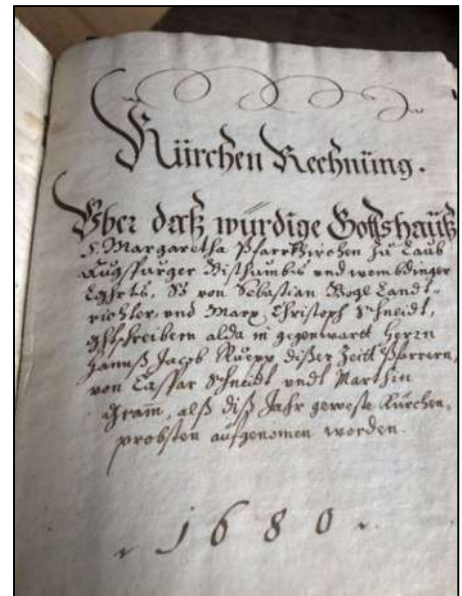 Kürchen Rechnung.
Yber daß würdige Gottshauß
S. Margaretha Pfarrkirchen zu Laub
Augspurger Bisthumbs und wembdinger
Ghrts, So von Sebastian Vogl Landt-
richter, und Marx Christoph Schneidt,
ghtschreibern alda in gegenwardt Herrn
Hannß Jacob Ruepp diser Zeitt Pfarrern,
von Caspar Schneidt undt Marthin
Gramm, alß diß Jahr geweste Kürchen,
probsten aufgenomen worden.
1680